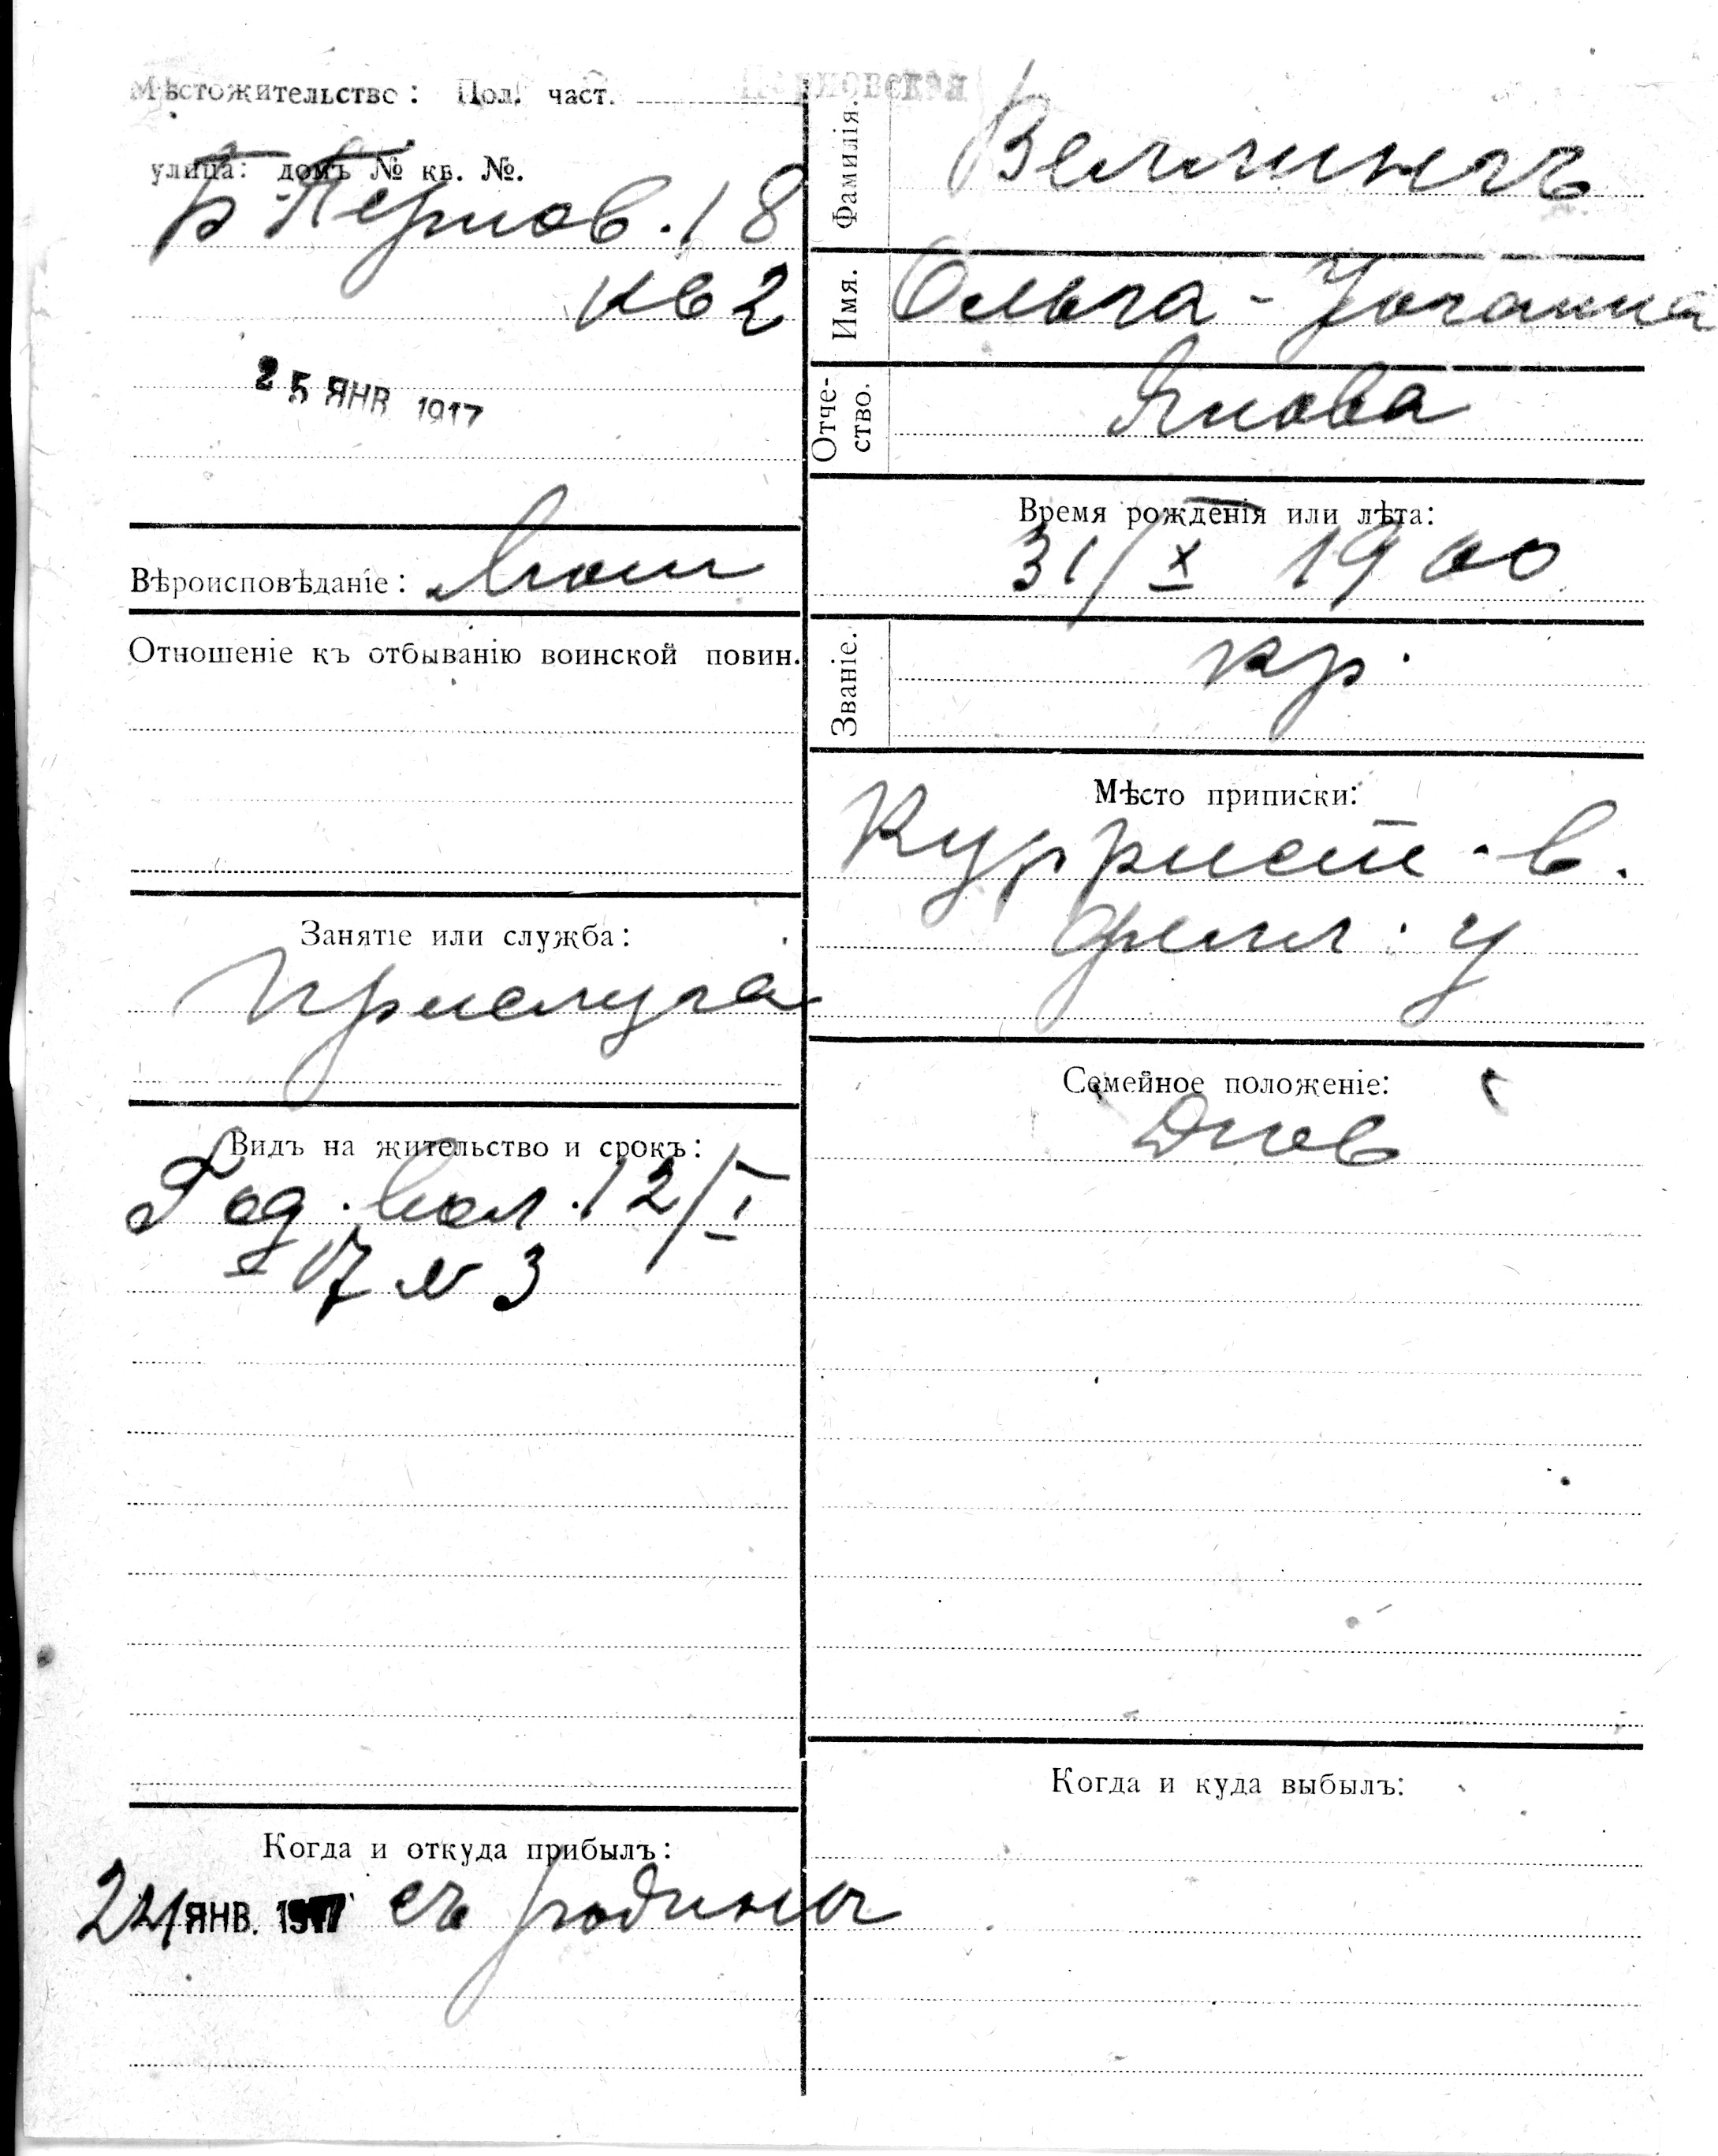 Мѣстожительство: Пол. част.
улица: домъ № кв. №.
Б-Пернов. 18
кв 2
25 ЯНВ 1917
Вѣроисповѣданіе: Лют
Отношеніе къ отбыванію воинской повин.
Занятіе или служба:
прислуга
Видъ на жительство и срокъ:
Год. вол. 12/I
17 № 3
Когда и откуда прибылъ:
24 ЯНВ. 1917 съ родины
Фамилія.
Веллингъ
Имя.
Ольга-Иоганна
Отче-
ство.
Янова
Время рожденія или лѣта:
31/X 1900
Званіе.
кр.
Мѣсто приписки:
Куррист-в.
Фелл. у
Семейное положеніе:
дѣв
Когда и куда выбылъ: